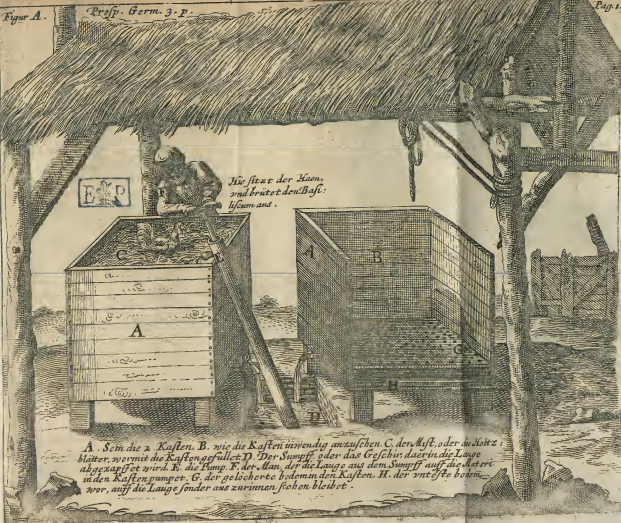 Figur A.
Prosp. Germ. 3. p.
Pag. 1.
Hie sitzt der Haen,
vnd brütet den Basi:
liscum aus.
E D
F
C
E
A
A
B
G
H
D
A. Sein die 2 Kasten. B. wie die Kasten inwendig anzusehen. C. der Mist, oder die Holtz:
blätter, wormit die Kasten gefullet D. Der Sumpff oder das Geschir, daerin die Lauge
abgezapffet wird. E. die Pump. F. der Man, der die Lauge aus dem Sumpff auff die Materi
in den Kasten pumpet. G. der gelöcherte bodem in den Kasten. H. der vnteste bodem,
wor, auff die Lauge sonder aus zurinnen stehen bleibet.